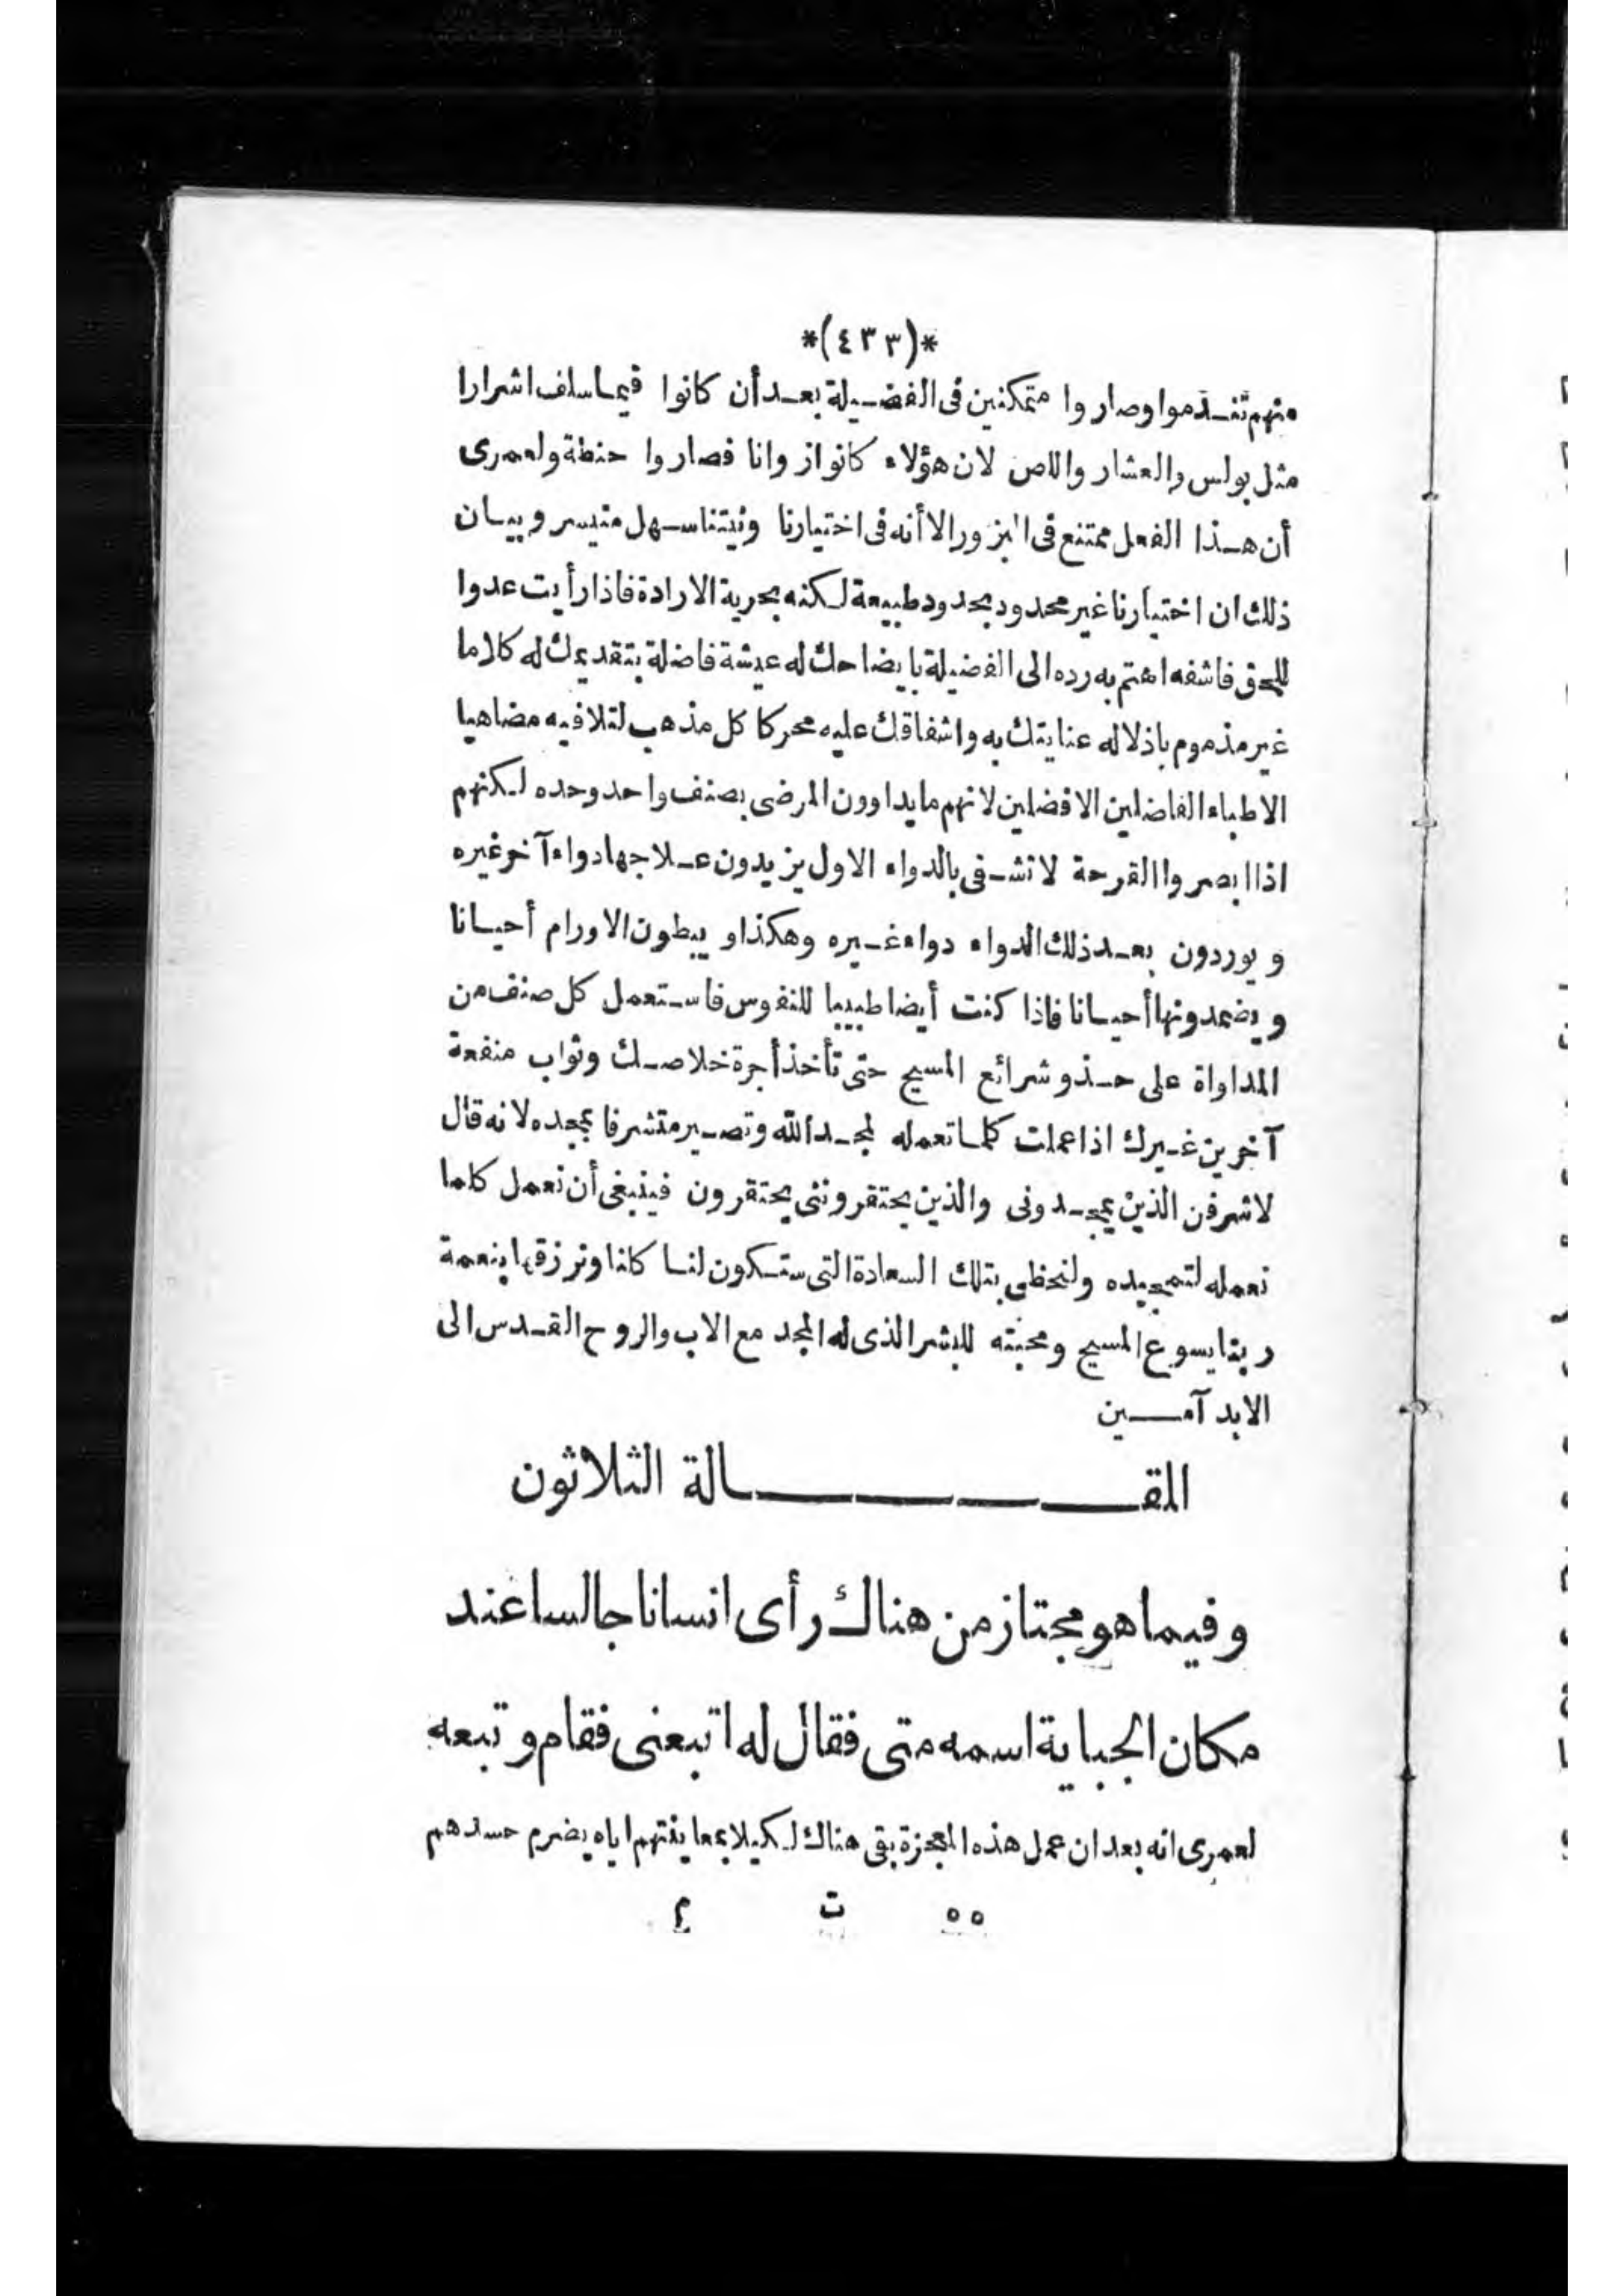 *(٤٣٣)*
منهم تقدموا وصاروا متمكنين فى الفضيلة بعد أن كانوا فيما سلف اشرارا
مثل بولس والعشار واللص لان هؤلاء كانوا زوانا فصاروا حنطة ولعمرى
أن هذا الفعل ممتنع فى البزور الا أنه فى اختيارنا ونيتنا سهل متيسر وبيان
ذلك ان اختيارنا غير محدود بحدود طبيعة لكنه بحرية الارادة فاذا رأيت عدوا
للحق فاشفه اهتم به رده الى الفضيلة بايضاحك له عيشة فاضلة بتقديمك له كلاما
غير مذموم باذلا له عنايتك به واشفاقك عليه محركا كل مذهب لتلافيه مضاهيا
الاطباء الفاضلين الافضلين لانهم ما يداوون المرضى بصنف واحد وحده لكنهم
اذا ابصروا القرحة لا تشفى بالدواء الاول يزيدون علاجها دواء آخر غيره
ويوردون بعد ذلك الدواء دواء غيره وهكذا ويبطون الاورام أحيانا
ويضمدونها أحيانا فاذا كنت أيضا طبيبا للنفوس فاستعمل كل صنف من
المداواة على حذو شرائع المسيح حتى تأخذ أجرة خلاصك وثواب منفعة
آخرين غيرك اذا عملت كلما تعمله لمجد الله وتصير متشرفا بمجده لانه قال
لاشرفن الذين يمجدونى والذين يحتقروننى يحتقرون فينبغى أن نعمل كلما
نعمله لتمجيده ولنحظى بتلك السعادة التى ستكون لنا كلنا ونرزقها بنعمة
ربنا يسوع المسيح ومحبته للبشر الذى له المجد مع الاب والروح القدس الى
الابد آمين
المقالة الثلاثون
وفيما هو مجتاز من هناك رأى انسانا جالسا عند
مكان الجباية اسمه متى فقال له اتبعنى فقام وتبعه
لعمرى انه بعد ان عمل هذه المعجزة بقى هناك لكيلا بمعاينتهم اياه يضرم حسدهم
٥٥ ت م